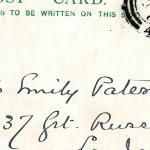 ST CARD.
S TO BE WRITTEN ON THIS S
s Emily Pater
37 Gt. Russ